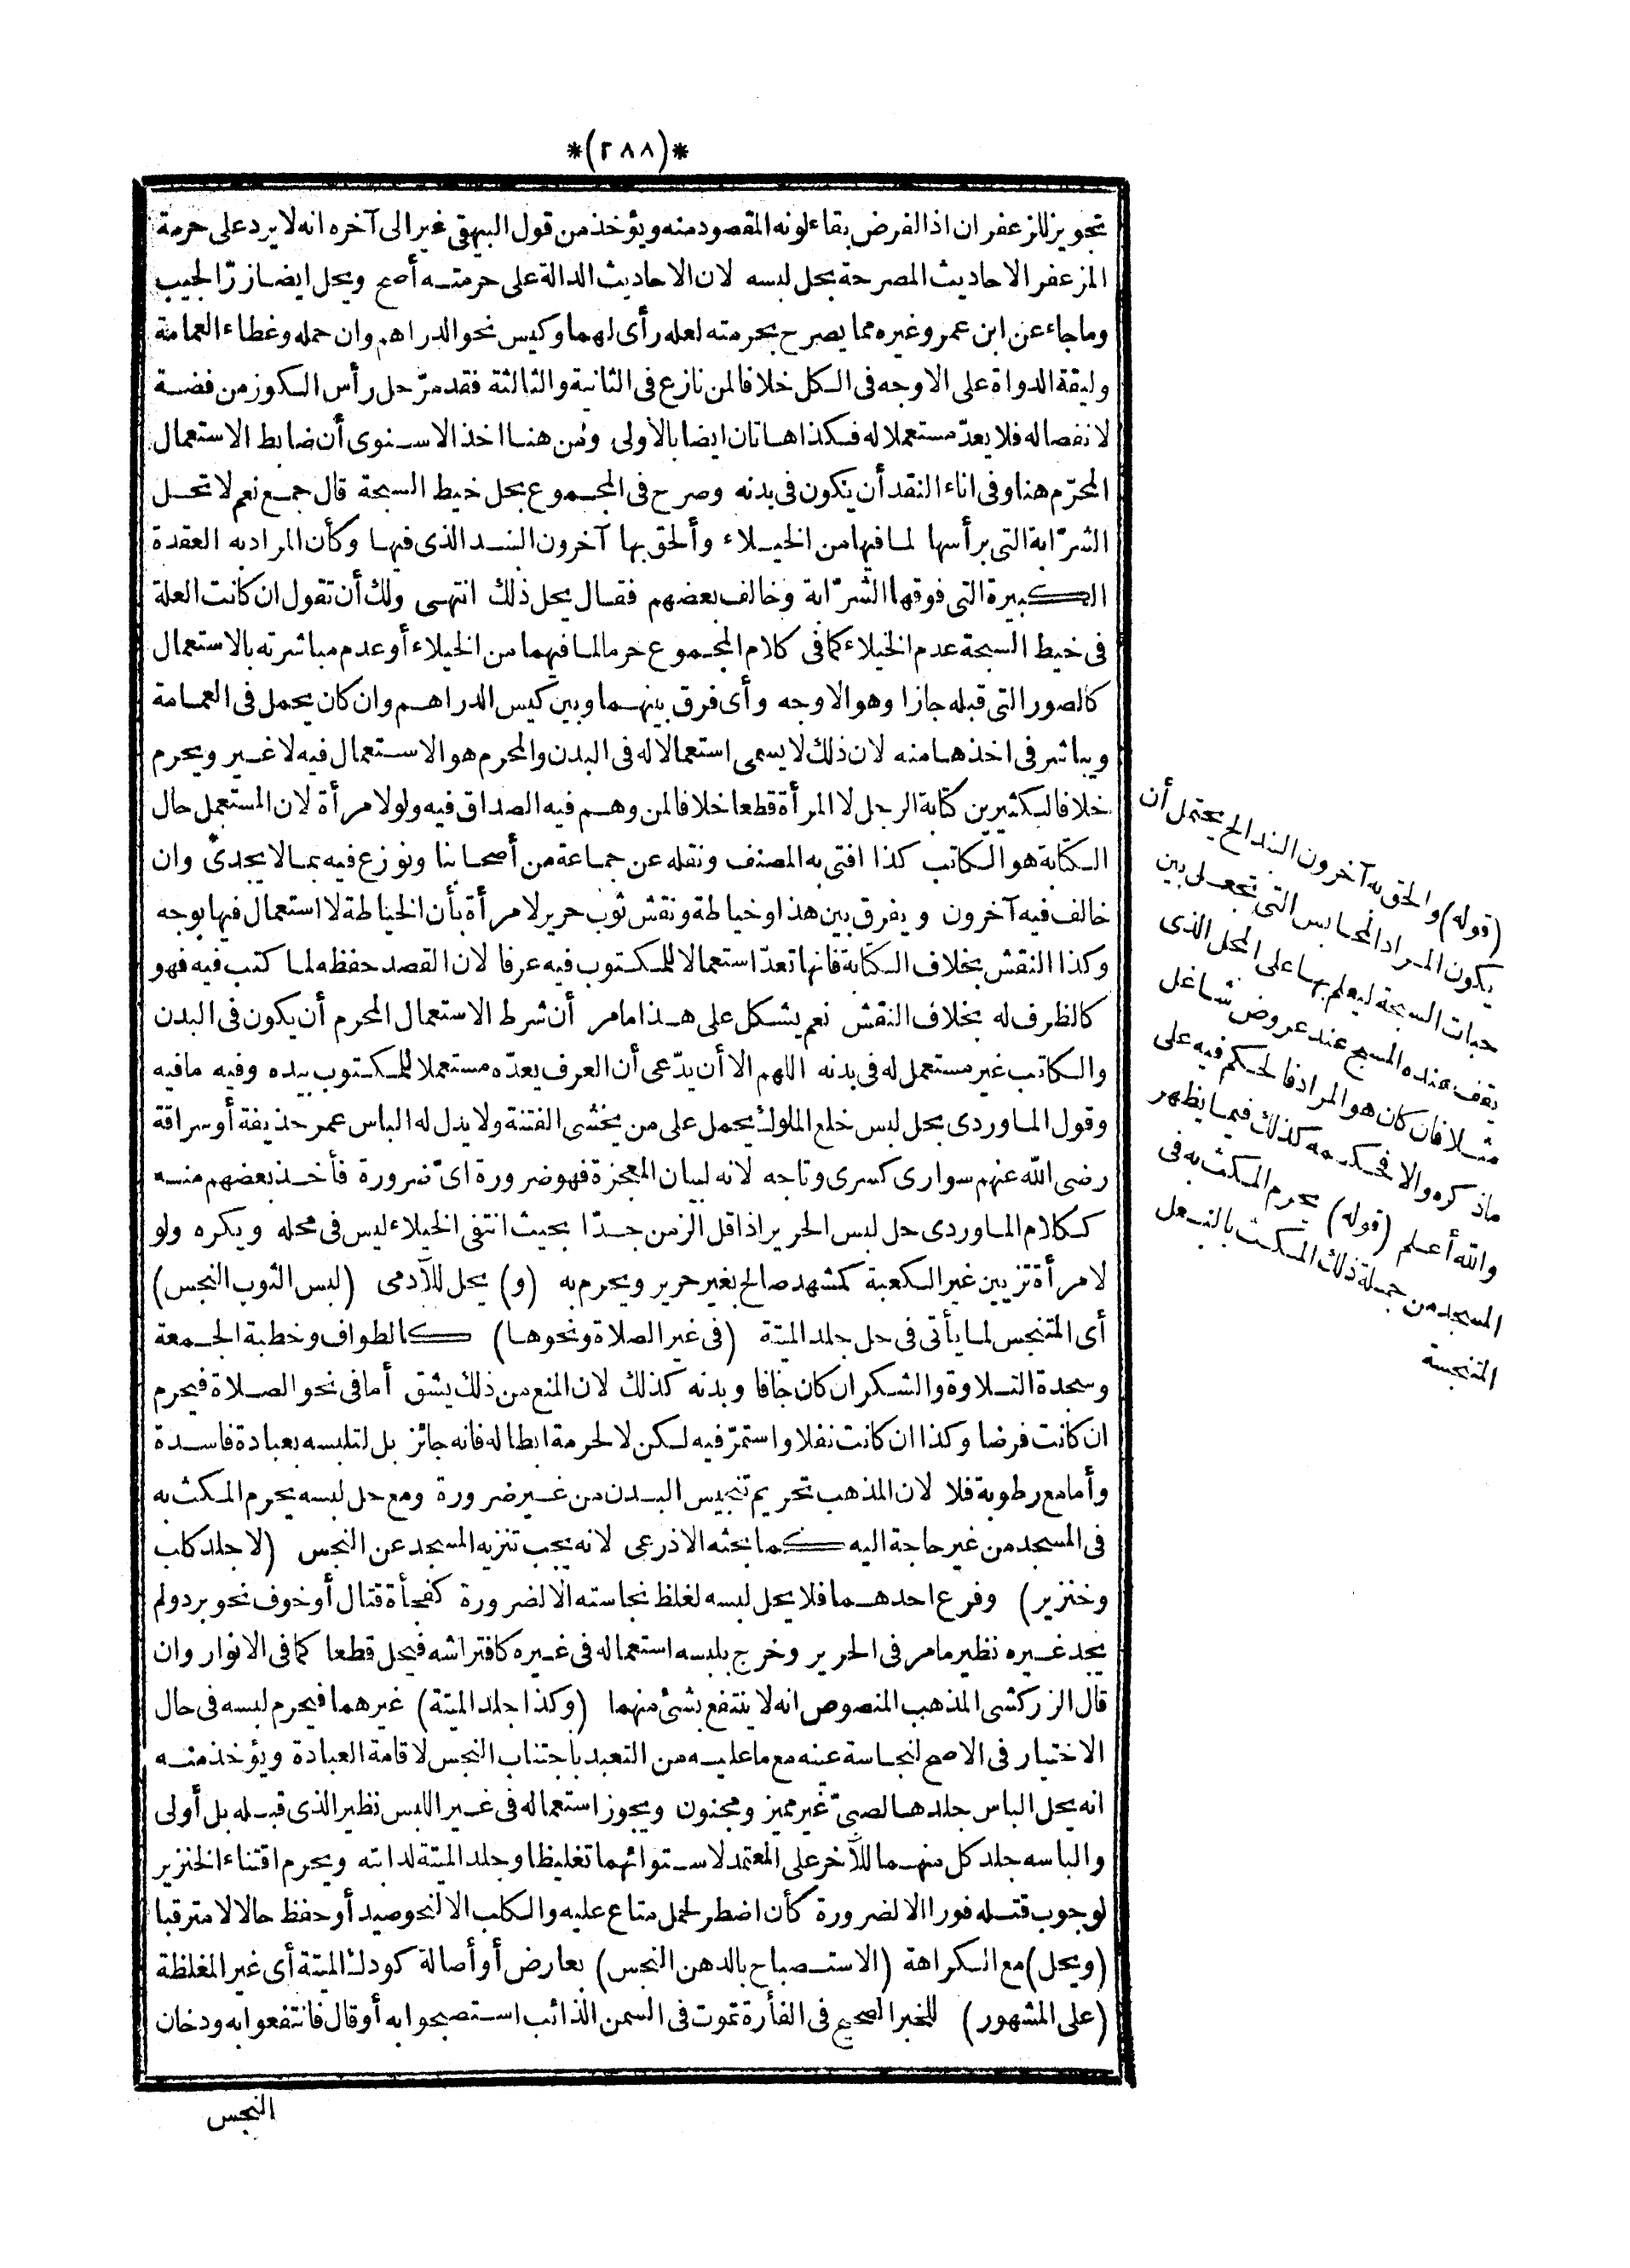 *(٢٨٨)*
تجويز للزعفران اذ الفرض بقاء لونه المقصود منه ويؤخذ من قول البيهقي غير الى آخره انه لا يرد على حرمة
المزعفر الاحاديث المصرحة بحل لبسه لان الاحاديث الدالة على حرمته أصح ويحل ايضا زرّ الجيب
وما جاء عن ابن عمر وغيره مما يصرح بحرمته لعله رأى لهما وكيس نحو الدراهم وان حمله وغطاء العمامة
وليقة الدواة على الاوجه فى الكل خلافا لمن نازع فى الثانية والثالثة فقد مرّ حل رأس الكوز من فضة
لانفصاله فلا يعدّ مستعملا له فكذا هاتان ايضا بالاولى ومن هنا اخذ الاسنوى أن ضابط الاستعمال
المحرّم هنا وفى اناء النقد أن يكون فى بدنه وصرح فى المجموع بحل خيط السبحة قال جمع نعم لا تحل
الشرّابة التى برأسها لما فيها من الخيلاء وألحق بها آخرون البند الذى فيها وكأن المراد به العقدة
الكبيرة التى فوقها الشرّابة وخالف بعضهم فقال يحل ذلك انتهى ولك أن تقول ان كانت العلة
فى خيط السبحة عدم الخيلاء كما فى كلام المجموع حرما لما فيهما من الخيلاء أو عدم مباشرته بالاستعمال
كالصور التى قبله جازا وهو الاوجه وأى فرق بينهما وبين كيس الدراهم وان كان يحمل فى العمامة
ويباشر فى اخذها منه لان ذلك لا يسمى استعمالا له فى البدن والمحرم هو الاستعمال فيه لا غير ويحرم
خلافا لكثيرين كتابة الرجل لا المرأة قطعا خلافا لمن وهم فيه الصداق فيه ولو لامرأة لان المستعمل حال
الكتابة هو الكاتب كذا افتى به المصنف ونقله عن جماعة من أصحابنا ونوزع فيه بما لا يجدى وان
خالف فيه آخرون ويفرق بين هذا وخياطة ونقش ثوب حرير لامرأة بأن الخياطة لا استعمال فيها بوجه
وكذا النقش بخلاف الكتابة فانها تعدّ استعمالا للمكتوب فيه عرفا لان القصد حفظه لما كتب فيه فهو
كالظرف له بخلاف النقش نعم يشكل على هذا ما مر أن شرط الاستعمال المحرم أن يكون فى البدن
والكاتب غير مستعمل له فى بدنه اللهم الا أن يدّعى أن العرف يعدّه مستعملا للمكتوب بيده وفيه ما فيه
وقول الماوردى بحل لبس خلع الملوك يحمل على من يخشى الفتنة ولا يدل له الباس عمر حذيفة أو سراقة
رضى الله عنهم سوارى كسرى وتاجه لانه لبيان المعجزة فهو ضرورة اىّ ضرورة فأخذ بعضهم منه
ككلام الماوردى حل لبس الحرير اذا قل الزمن جدّا بحيث انتفى الخيلاء ليس فى محله ويكره ولو
لامرأة تزيين غير الكعبة كمشهد صالح بغير حرير ويحرم به (و) يحل للآدمى (لبس الثوب النجس)
أى المتنجس لما يأتى فى حل جلد الميتة (فى غير الصلاة ونحوها) كالطواف وخطبة الجمعة
وسجدة التلاوة والشكر ان كان جافا وبدنه كذلك لان المنع من ذلك يشق أما فى نحو الصلاة فيحرم
ان كانت فرضا وكذا ان كانت نفلا واستمرّ فيه لكن لا لحرمة ابطاله فانه جائز بل لتلبسه بعبادة فاسدة
وأما مع رطوبة فلا لان المذهب تحريم تنجيس البدن من غير ضرورة ومع حل لبسه يحرم المكث به
فى المسجد من غير حاجة اليه كما بحثه الاذرعى لانه يجب تنزيه المسجد عن النجس (لا جلد كلب
وخنزير) وفرع احدهما فلا يحل لبسه لغلظ نجاسته الا لضرورة كفجأة قتال أو خوف نحو برد ولم
يجد غيره نظير ما مر فى الحرير وخرج بلبسه استعماله فى غيره كافتراشه فيحل قطعا كما فى الانوار وان
قال الزركشى المذهب المنصوص انه لا ينتفع بشئ منهما (وكذا جلد الميتة) غيرهما فيحرم لبسه فى حال
الاختيار فى الاصح لنجاسة عينه مع ما عليه من التعبد باجتناب النجس لاقامة العبادة ويؤخذ منه
انه يحل الباس جلدها لصبىّ غير مميز ومجنون ويجوز استعماله فى غير اللبس نظير الذى قبله بل أولى
والباسه جلد كل منهما للآخر على المعتمد لاستوائهما تغليظا وجلد الميتة لدابته ويحرم اقتناء الخنزير
لوجوب قتله فورا الا لضرورة كأن اضطر لحمل متاع عليه والكلب الا لنحو صيد أو حفظ حالا لا مترقبا
(ويحل) مع الكراهة (الاستصباح بالدهن النجس) بعارض أو أصالة كودك الميتة أى غير المغلظة
(على المشهور) للخبر الصحيح فى الفأرة تموت فى السمن الذائب استصبحوا به أو قال فانتفعوا به ودخان
النجس
(قوله) والحق به آخرون البند الخ يحتمل أن
يكون المراد المحابس التى تجعل بين
حبات السبحة ليعلم بها على المحل الذى
يقف عنده المسبح عند عروض شاغل
مثلا فان كان هو المراد فالحكم فيه على
ما ذكره والا فحكمه كذلك فيما يظهر
والله أعلم (قوله) يحرم المكث به فى
المسجد من جملة ذلك المكث بالنعل
المتنجسة